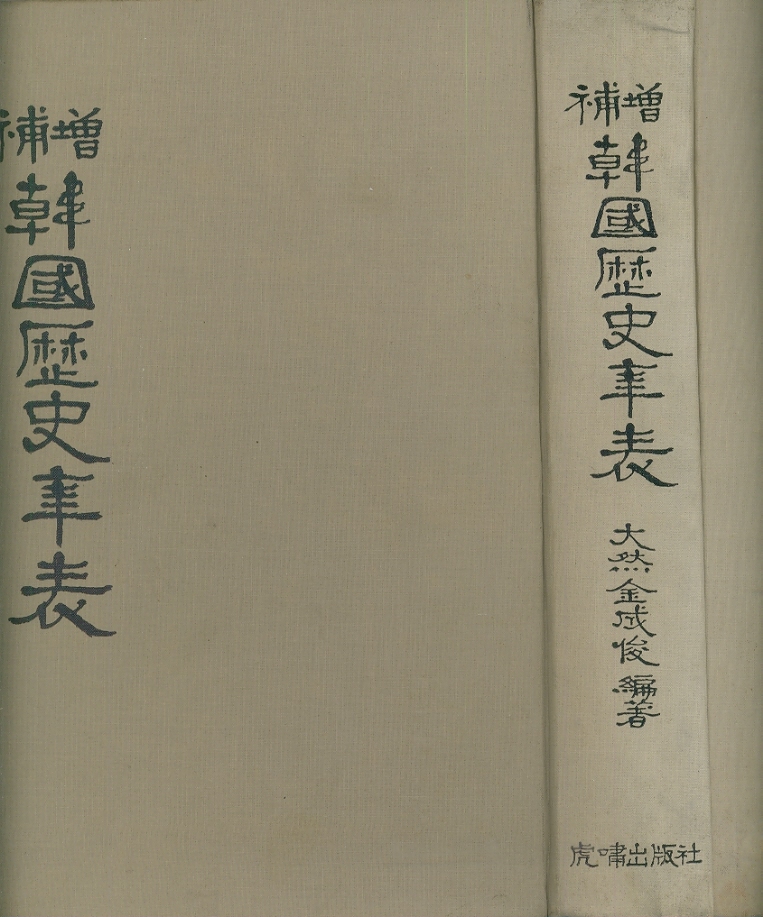 增補
韓國歷史年表
增補
韓國歷史年表
大然 金成俊 編著
虎嘯出版社